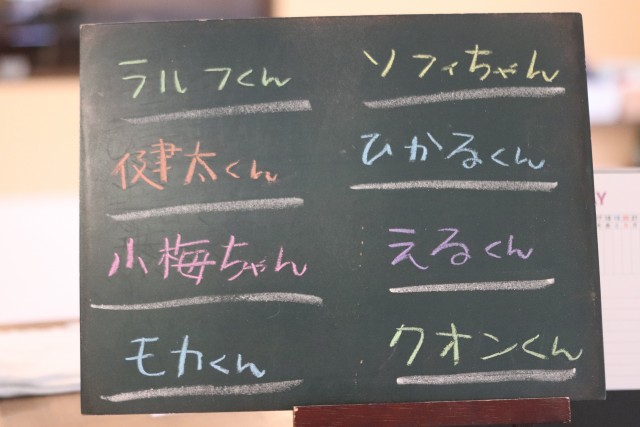 ラルフくん
ソフィちゃん
健太くん
ひかるくん
小梅ちゃん
えるくん
モカくん
クオンくん